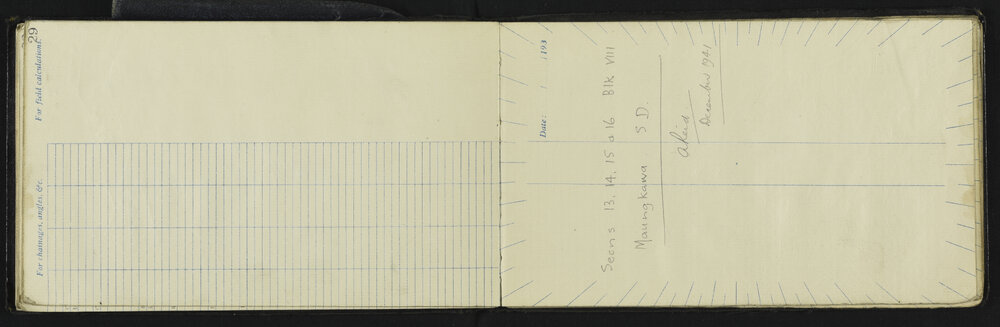 29
For field calculations.
For chainages, angles, &c.
Date: / /193
Secns 13, 14, 15 & 16 Blk VIII
Maungkawa S D.
December 1941